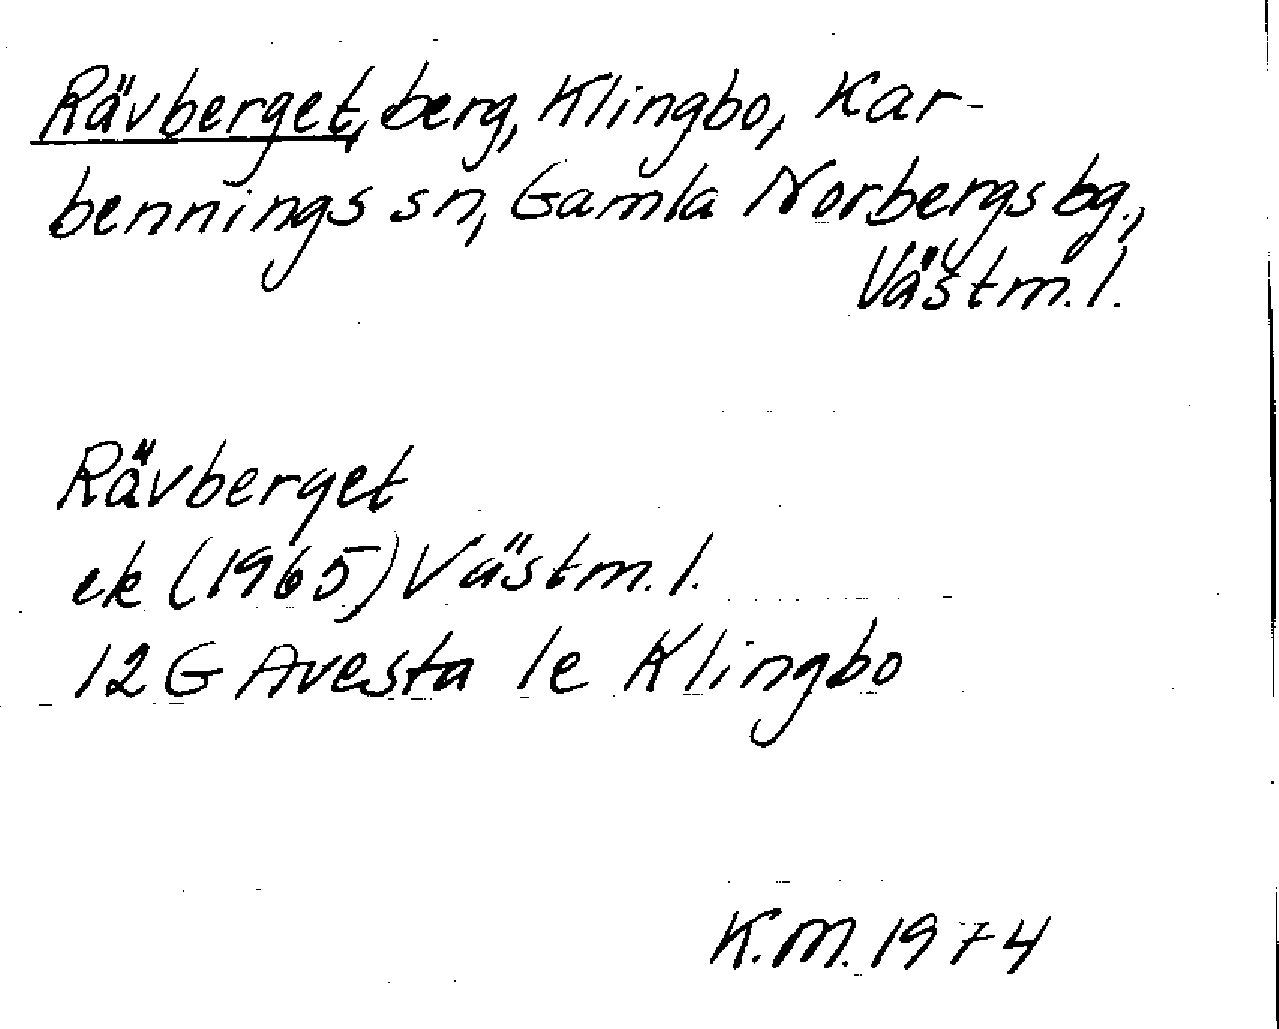 Rävberget, berg, Klingbo, Kar-
bennings sn, Gamla Norbergs bg.,
Västm. l.
Rävberget
ek (1965) Västm. l.
12G Avesta 1e Klingbo
K.M. 1974